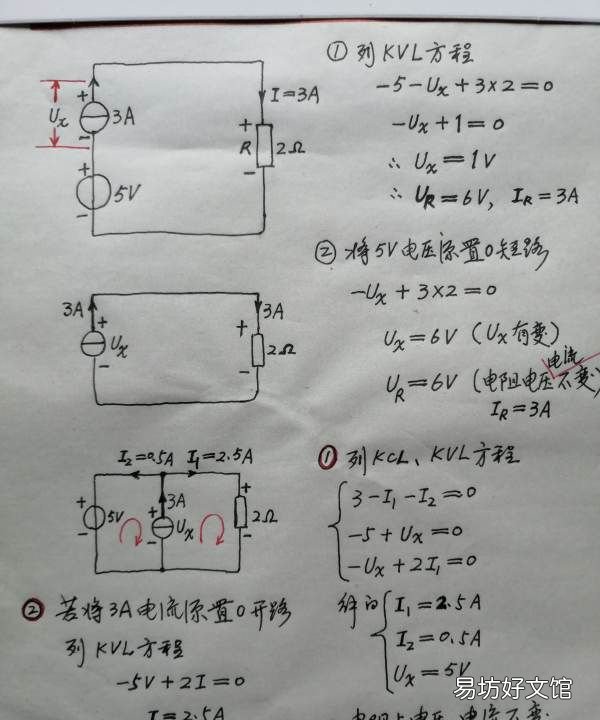 ① 列KVL方程
-5-Ux+3×2=0
-Ux+1=0
∴ Ux=1V
∴ UR=6V, IR=3A
+
Ux
3A
-
+
5V
-
I=3A
+
R
2Ω
-
② 将5V电压源置0短路
-Ux+3×2=0
Ux=6V (Ux有变)
电流
UR=6V (电阻电压不变)
IR=3A
3A
+
Ux
-
3A
+
2Ω
-
I2=0.5A
I1=2.5A
+
5V
-
3A
+
Ux
-
+
2Ω
-
① 列KCL、KVL方程
3-I1-I2=0
-5+Ux=0
-Ux+2I1=0
解的
I1=2.5A
I2=0.5A
Ux=5V
② 若将3A电流源置0开路
列KVL方程
-5V+2I=0
I=2.5A
电阻上电压、电流不变
易坊好文馆